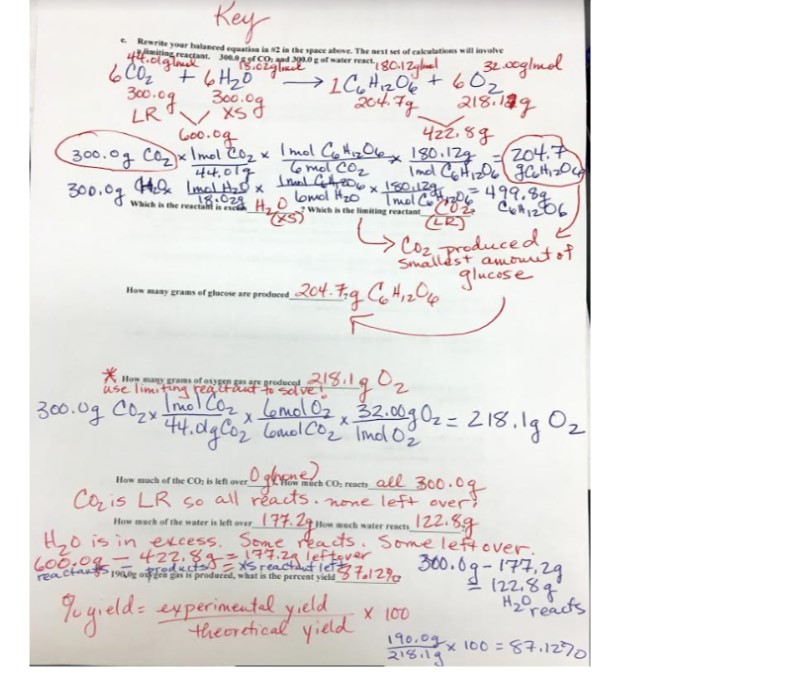 Key
e. Rewrite your balanced equation in #2 in the space above. The next set of calculations will involve
a limiting reactant. 300.0 g of CO₂ and 300.0 g of water react.
44.01g/mol 18.02g/mol 180.12g/mol 32.00g/mol
6CO₂ + 6H₂O → 1C₆H₁₂O₆ + 6O₂
300.0g 300.0g 204.7g 218.1g
LR XS
600.0g 422.8g
300.0g CO₂ x 1mol CO₂ x 1mol C₆H₁₂O₆ x 180.12g = 204.7
44.01g 6mol CO₂ 1mol C₆H₁₂O₆ gC₆H₁₂O₆
300.0g H₂O x 1mol H₂O x 1mol C₆H₁₂O₆ x 180.12g = 499.8g
18.02g 6mol H₂O 1mol C₆H₁₂O₆ C₆H₁₂O₆
Which is the reactant is excess H₂O ? Which is the limiting reactant CO₂
(XS) (LR)
CO₂ produced
smallest amount of
glucose
How many grams of glucose are produced 204.7g C₆H₁₂O₆
* How many grams of oxygen gas are produced 218.1g O₂
use limiting reactant to solve!
300.0g CO₂ x 1mol CO₂ x 6mol O₂ x 32.00g O₂ = 218.1g O₂
44.01g CO₂ 6mol CO₂ 1mol O₂
How much of the CO₂ is left over 0g (none) How much CO₂ reacts all 300.0g
CO₂ is LR so all reacts. none left over!
How much of the water is left over 177.2g How much water reacts 122.8g
H₂O is in excess. Some reacts. Some left over.
600.0g - 422.8g = 177.2g leftover 300.0g - 177.2g
reactants - products = XS reactant left = 122.8g
190.0g oxygen gas is produced, what is the percent yield 87.12% H₂O reacts
% yield = experimental yield x 100
theoretical yield
190.0g x 100 = 87.12%
218.1g